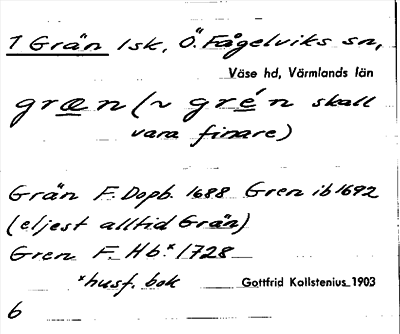 1 Grän 1sk, Ö. Fågelviks sn,
Väse hd, Värmlands län
græn (~ grén skall
vara finare)
Grän F. Dopb. 1688 Gren ib 1692
(eljest alltid Grän)
Gren F. Hb.* 1728
*husf. bok
Gottfrid Kallstenius 1903
6